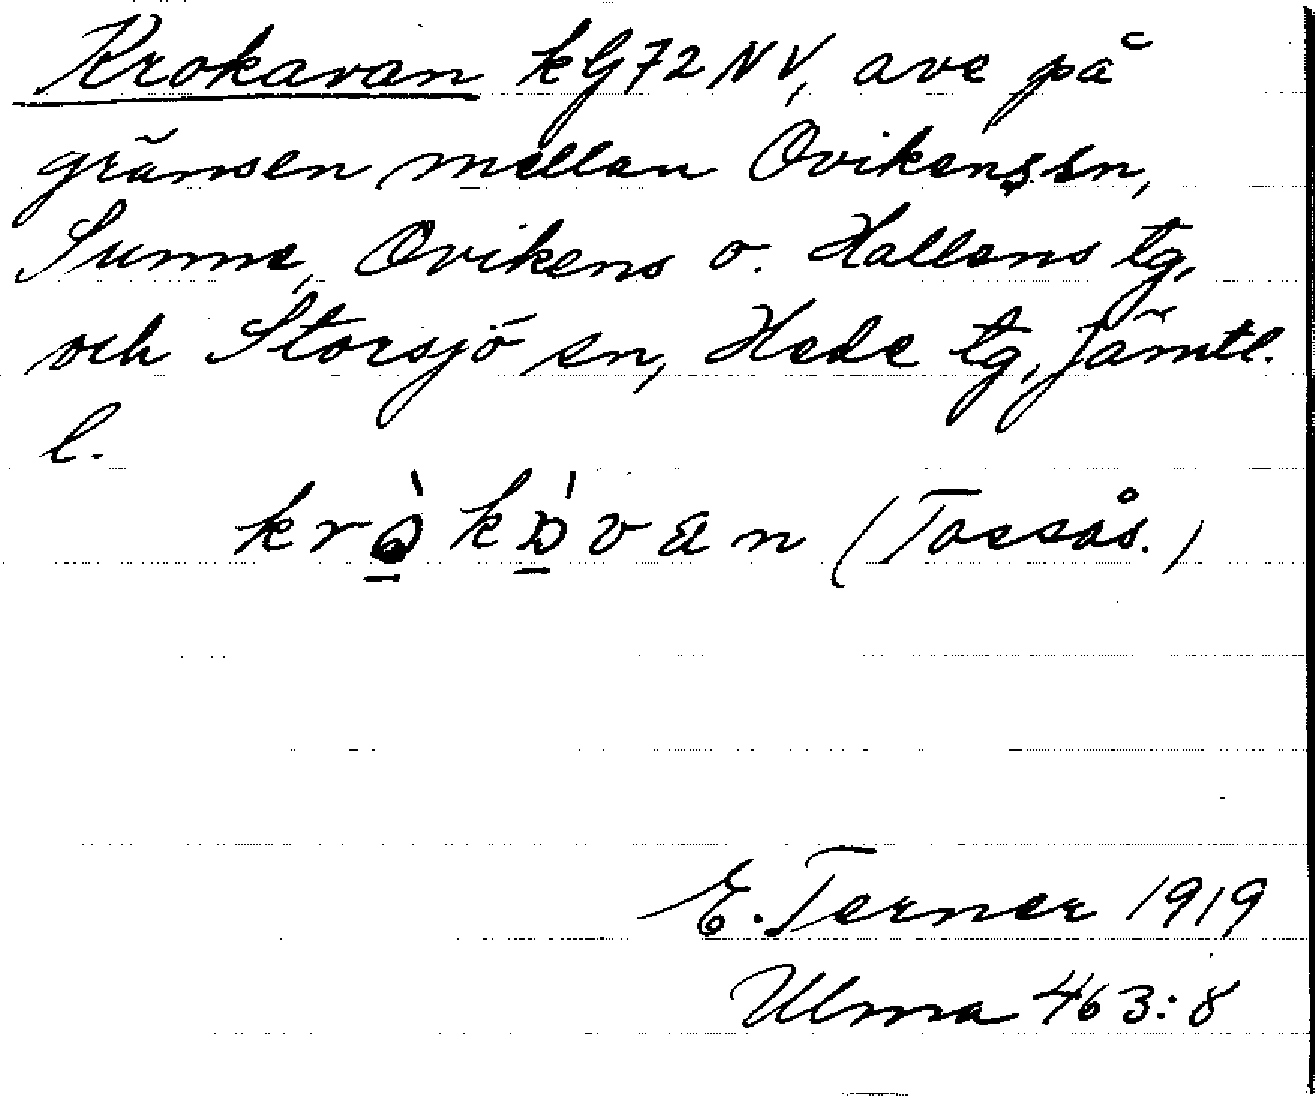 Krokavan kG72NV, ave på
gränsen mellan Ovikens sn,
Sunne, Ovikens o. Hallens tg,
och Storsjö sn, Hede tg, Jämtl.
l.
(Tossås.)
E. Terner 1919
Ulma 463:8